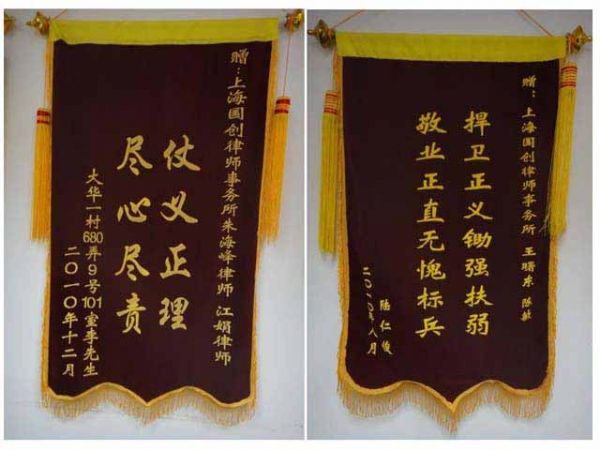 赠：上海国创律师事务所朱海峰律师 江娟律师
仗义正理
尽心尽责
大华一村680弄9号101室李先生
二〇一〇年十二月
赠：上海国创律师事务所 王曙东 陈敏
捍卫正义锄强扶弱
敬业正直无愧标兵
陆仁俊
二〇一〇年八月